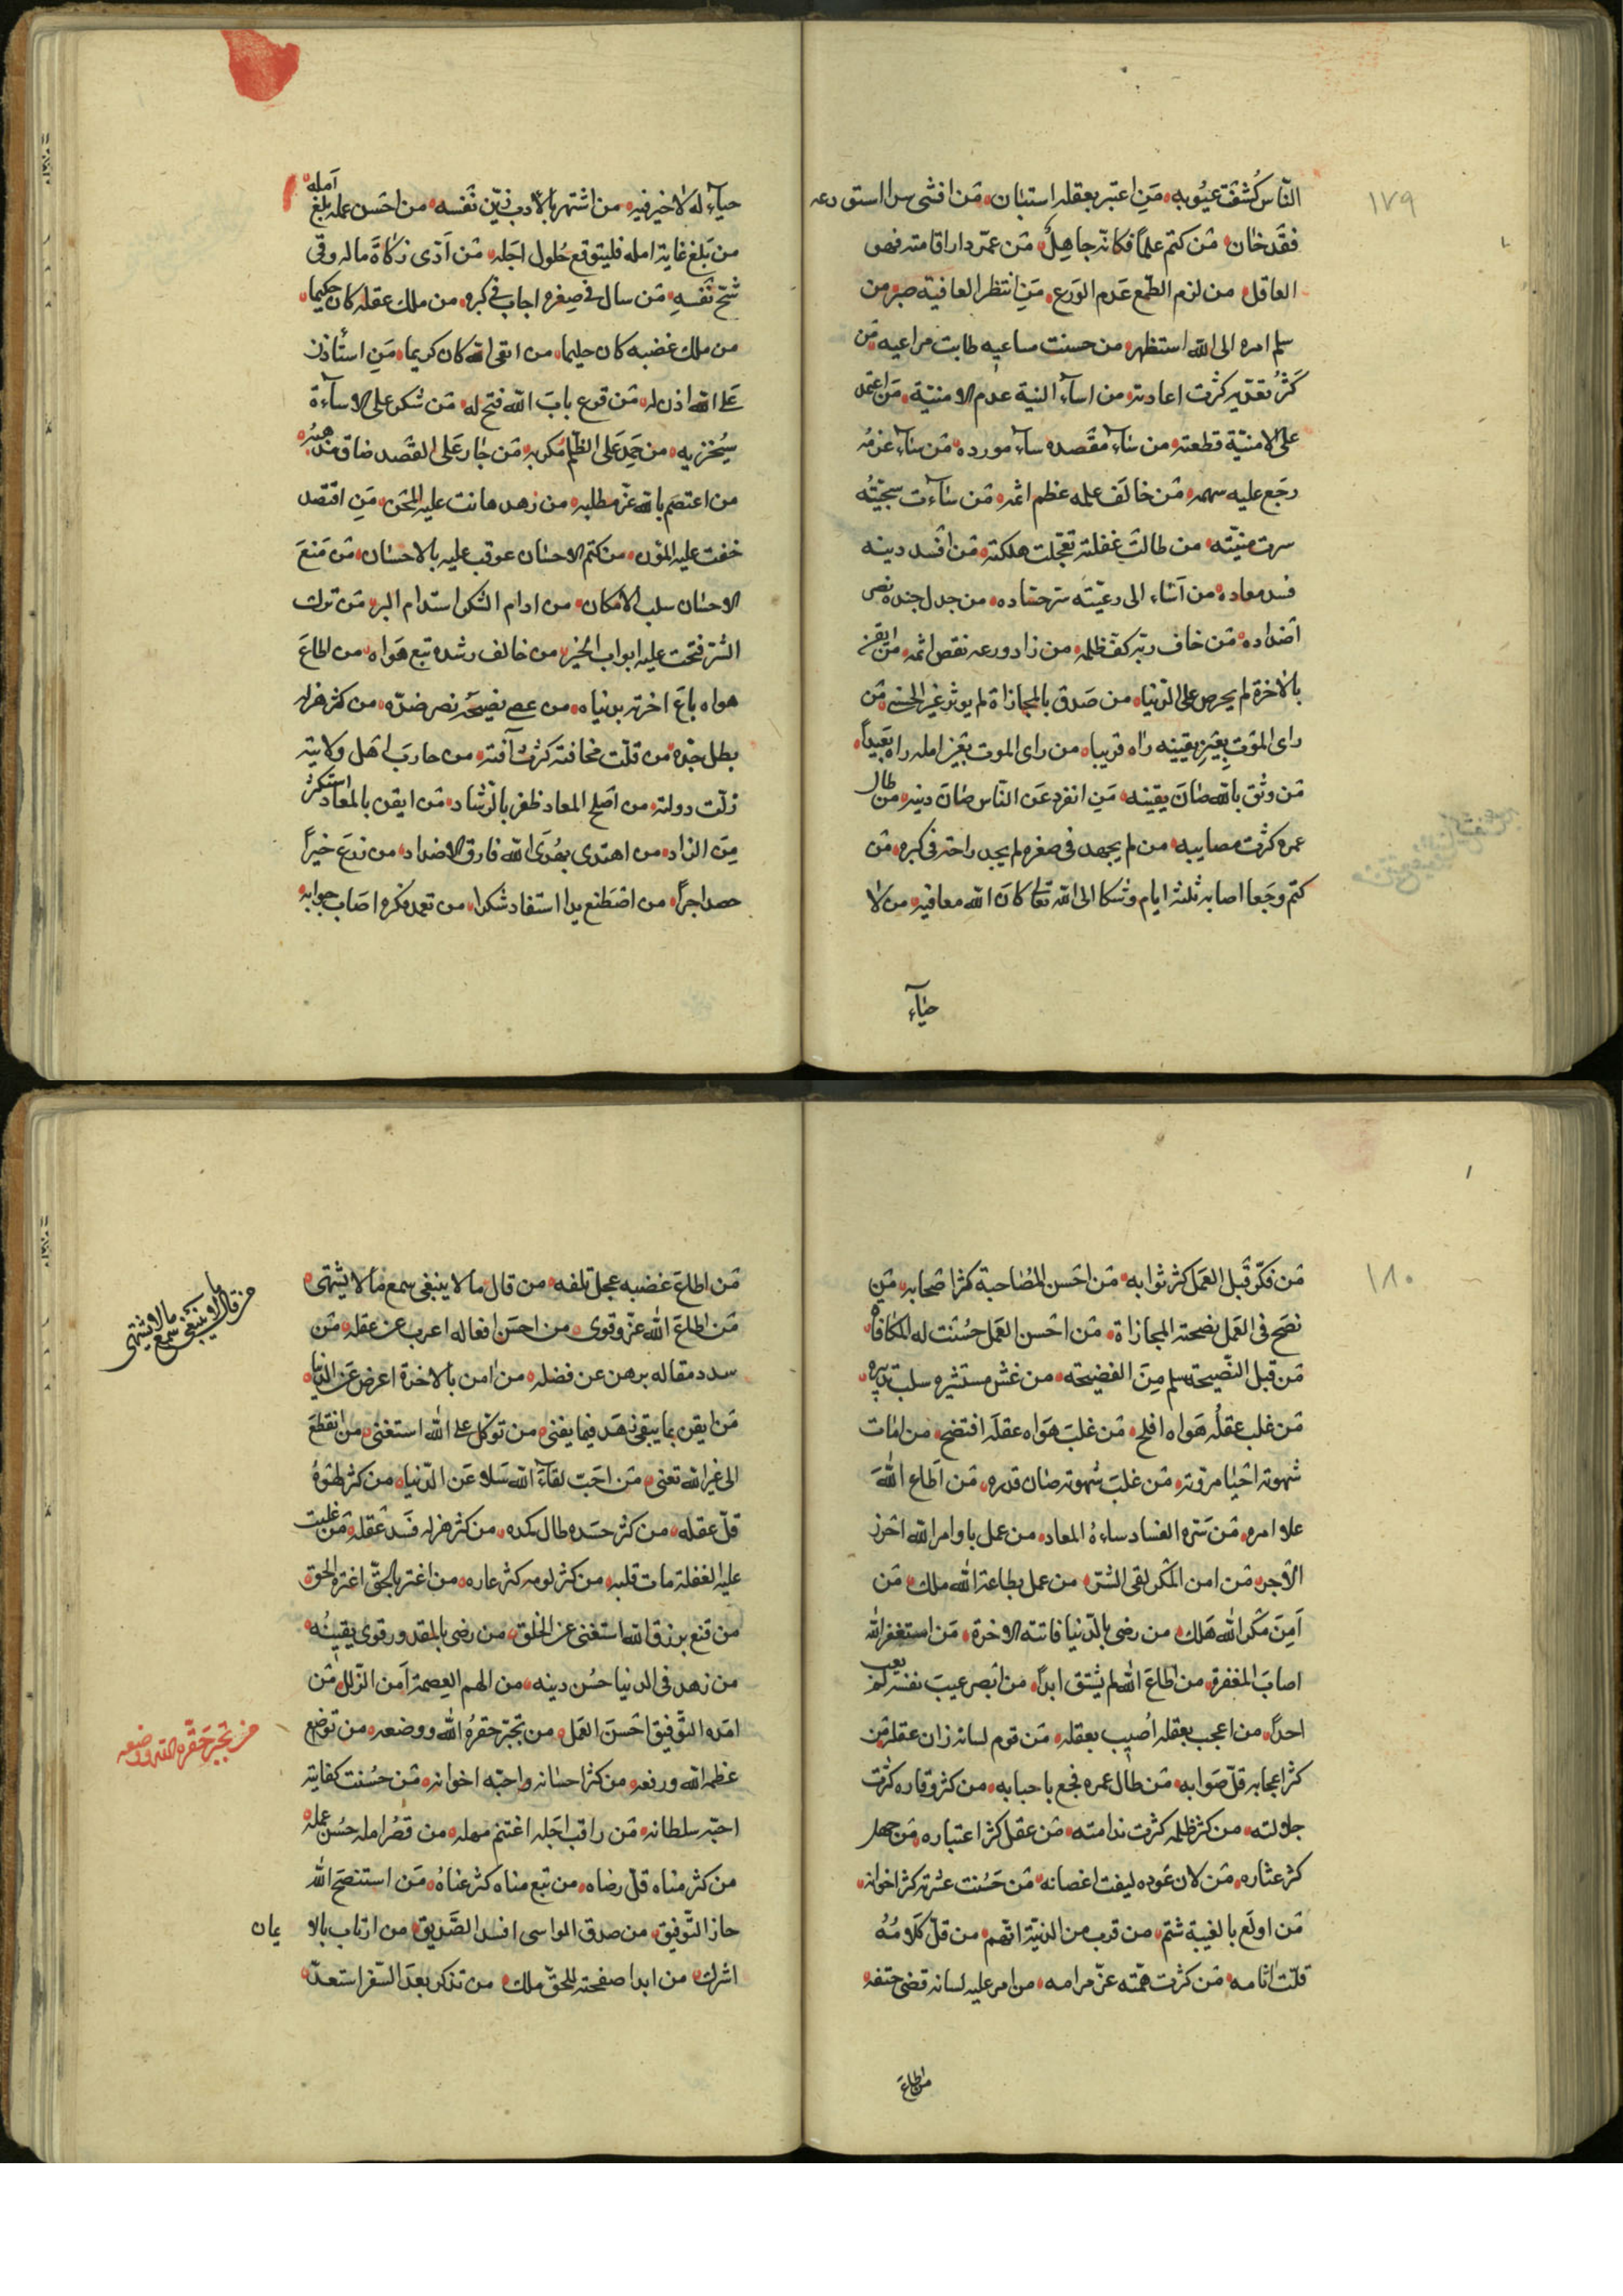 ١٧٩
النّاس كُشفت عيُوبه من اعتبر بعقله استبان من افشى سرا استودعه
فقد خان من كتم علماً فكانّه جاهلٌ من عمّر دار اقامته فهو
العاقل من لزم الطّمع عدم الورع من انتظر العافية صبر من
سلم امره الى الله استظهر من حسنت مساعيه طابت مراعيه من
كثرُ تعدّيه كثرت اعاديه من اساء النية عدم الامنيّة من اعتمد
على الامنيّة قطعته من ساء مقصده ساء مورده من ساء عزمه
رجع عليه سهمه من خالف علمه عظم اثمه من ساءت سجيّته
سرت منيّته من طالت غفلته تعجّلت هلكته من افسد دينه
فسد معاده من اساء الى رعيّته سر حسّاده من جدل جنده نصر
اضداده من خاف ربّه كفّ ظلمه من زاد ورعه نقص اثمه من ايقن
بالاخرة لم يحرص على الدّنيا من صدق بالمجازاة لم يوثر غير الحسنى من
راى الموت بعين يقينه راه قريبا من راى الموت بعين امله راه بعيداً
من وثق بالله صان يقينه من انفرد عن النّاس صان دينه من طال
عمره كثرت مصايبه من لم يجهد فى صغره لم يجد راحته فى كبره من
كتم وجعا اصابه ثلثة ايام وشكا الى الله تعالى كان الله معافيه من لا
حياء
حياء له لا خير فيه من اشتهر بالادب زيّن نفسه من احسن عمله بلغ امله
من بلغ غاية امله فليتوقع حُلول اجله من ادّى زكاة ماله وقى
شحّ نفسه من سال فى صغره اجاب فى كبره من ملك عقله كان حكيما
من ملك غضبه كان حليما من اتقى الله كان كريما من استأذن
على الله اذن له من قرع باب الله فتح له من شكر على الاساءة
سُخر به من حمد على الظلم مكر به من جار على القصد ضاق مذهبُه
من اعتصم بالله عزّ مطلبه من زهد هانت عليه المحن من اقتصد
خفت عليه المؤن من كتم الاحسان عوقب عليه بالاحسان من منع
الاحسان سلب الامكان من ادام الشكر استدام البر من ترك
الشرّ فتحت عليه ابواب الخير من خالف رشده تبع هواه من اطاع
هواه باع اخرته بدنياه من عصى نصيحه نصر ضدّه من كثر هزله
بطل جدّه من قلّت مخافته كثرت آفته من حارب اهل ولايته
زلّت دولته من اصلح المعاد ظفر بالرشاد من ايقن بالمعاد استكثر
من الزاد من اهتدى بهُدى الله فارق الاضداد من زرع خيراً
حصد اجراً من اصطنع يدا استفاد شكرا من تعمد فكره اصاب جوابه
١٨٠
من فكّر قبل العمل كثر ثوابه من احسن المُصاحبة كثر اصحابه من
نصح فى العمل نصحته المجازاة من احسن العمل حسُنت له المكافاة
من قبل النّصيحة سلم من الفضيحته من غش مستشيره سلب تدبيره
من غلب عقلُه هواه افلح من غلب هواه عقله افتضح من امات
شهوته احيا مروّته من غلب شهوته صان قدره من اطاع الله
علا امره من سره الفساد ساءهُ المعاد من عمل باوامر الله احرز
الاجر من امن المكر لقى الشرّ من عمل بطاعة الله ملك من
آمن مكر الله هلك من رضى بالدّنيا فاتته الاخرة من استغفر الله
اصاب المغفرة من اطاع الله لم يشق ابداً من ابصر عيب نفسه لم يعب
احداً من اعجب بعقله أصيب بعقله من قوم لسانه زان عقله من
كثر اعجابه قلّ صوابه من طال عمره فجع باحبابه من كثر وقاره كثرت
جلالته من كثر ظلمه كثرت ندامته من عقل كثر اعتباره من جهل
كثر عثاره من لان عوده ليفت اغصانه من حسُنت عشرته كثر اخوانه
من اولع بالغيبة شتم من قرب من الدنيّة اتّهم من قلّ كلامُهُ
قلّت اثامه من كثرت همّته عزّ مرامه من امر عليه لسانه قضى حتفه
من اطاع
من اطاع غضبه عجل تلفه من قال ما لا ينبغى سمع ما لا يشتهى
من اطاع الله عزّ وقوى من احسن افعاله اعرب عن عقله من
سدد مقاله برهن عن فضله من امن بالاخرة اعرض عن الدّنيا
من ايقن بما يبقى زهد فيما يفنى من توكّل على الله استغنى من انقطع
الى غير الله تعنى من احبّ لقاء الله سلا عن الدّنيا من كثر لهوُهُ
قلّ عقله من كثر حسده طال كمده من كثر هزله فسد عقله من غلبت
عليه الغفلة مات قلبه من كثر لومه كثر عاره من اغتر بالحقّ اغتره الحق
من قنع برزق الله استغنى عن الخلق من رضى بالمقدور قوى يقينُه
من زهد فى الدنيا حسُن دينه من الهم العصمة آمن الزّلل من
امده التّوفيق احسن العمل من تجبّر حقرهُ الله ووضعه من توضع
عظمه الله ورفعه من كثر احسانه واحبّه اخوانه من حسُنت كفايته
احبّه سلطانه من راقب اجله اغتنم مهله من قصّر امله حسُن عمله
من كثر مناه قلّ رضاه من تبع مناه كثر عناهُ من استنصح الله
حاز التّوفيق من صدق الواسى افسد الصّديق من ارتاب بالا يمان
اشرك من ابدا صفحته للحقّ ملك من تذكر بعد السّفر استعدّ
من قال ما لا ينبغى سمع ما لا يشتهى
من تجبر حقره الله ووضعه